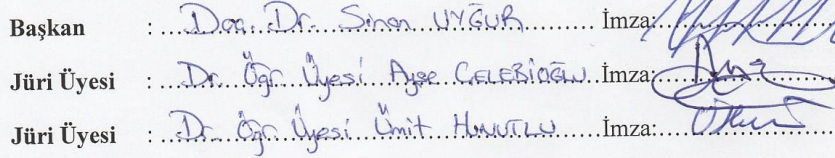 Başkan : Doç. Dr. Sinan UYGUR İmza:
Jüri Üyesi : Dr. Öğr. Üyesi Ayşe ÇELEBİOĞLU İmza:
Jüri Üyesi : Dr. Öğr. Üyesi Ümit HUNUTLU İmza: